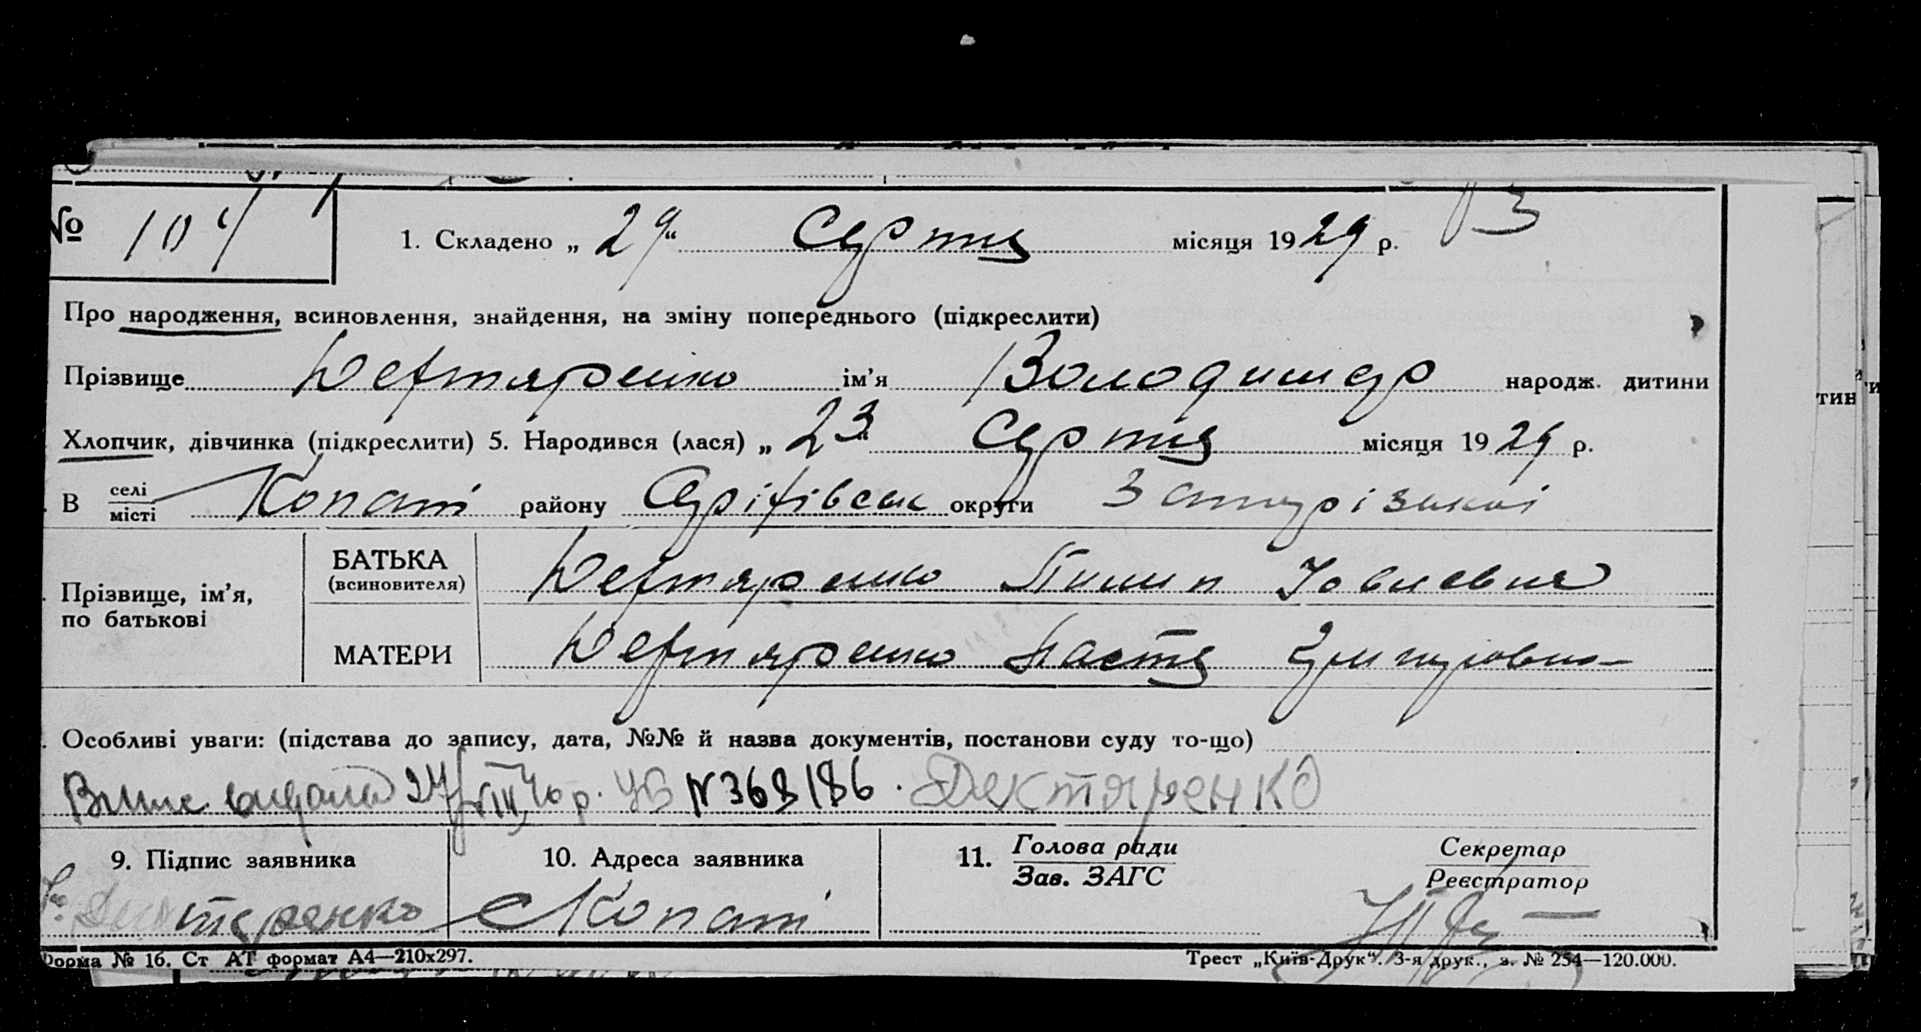 № 104
1. Складено „ 29 “ Серпня місяця 1929 р.
Про народження, всиновлення, знайдення, на зміну попереднього (підкреслити)
Прізвище Дегтяренко ім’я Володимер народж. дитини
Хлопчик, дівчинка (підкреслити) 5. Народився (лася) „ 23 “ Серпня місяця 1929 р.
В селі місті Копані району Оріхівськ округи Запорізької
Прізвище, ім’я, по батькові
БАТЬКА (всиновителя) Дегтяренко Пилип Іовлевич
МАТЕРИ Дегтяренко Настя Григоровна
Особливі уваги: (підстава до запису, дата, №№ й назва документів, постанови суду то-що)
видано 27/VIII 40 р. УБ N 368186. Дектяренко
9. Підпис заявника 10. Адреса заявника 11. Голова ради Зав. ЗАГС Секретар Реєстратор
Копані
Форма № 16. Ст АТ формат А4—210х297. Трест „Київ-Друк“. 3-я друк., з. № 254—120.000.